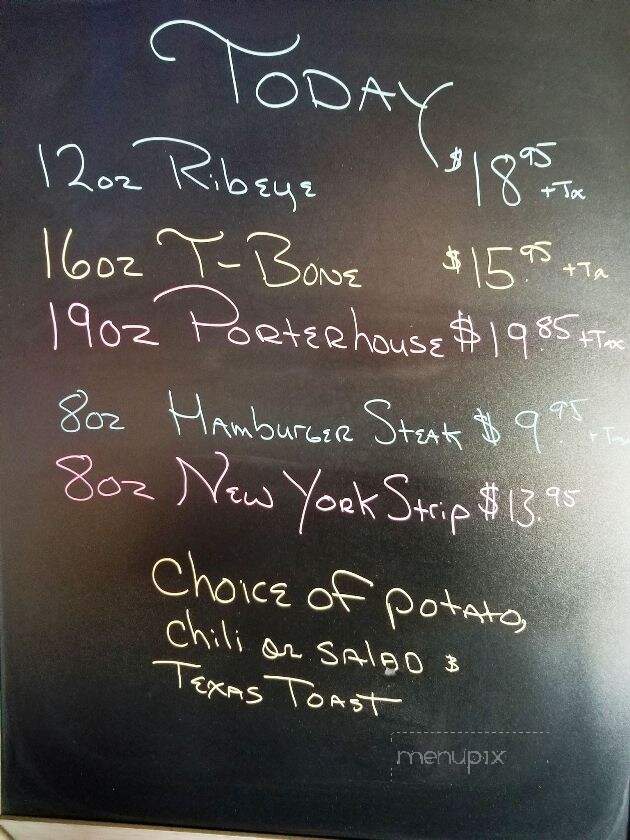 TODAY
12oz Ribeye $18.95 +Tx
16oz T-BONE $15.95 +Tx
19oz PORTERhOUSE $19.85 +Tax
8oz HAMBURGER STEAK $9.95 +Tax
8oz NEW YORK Strip $13.95
Choice of potato,
chili or SALAD &
TEXAS TOAST
menupix